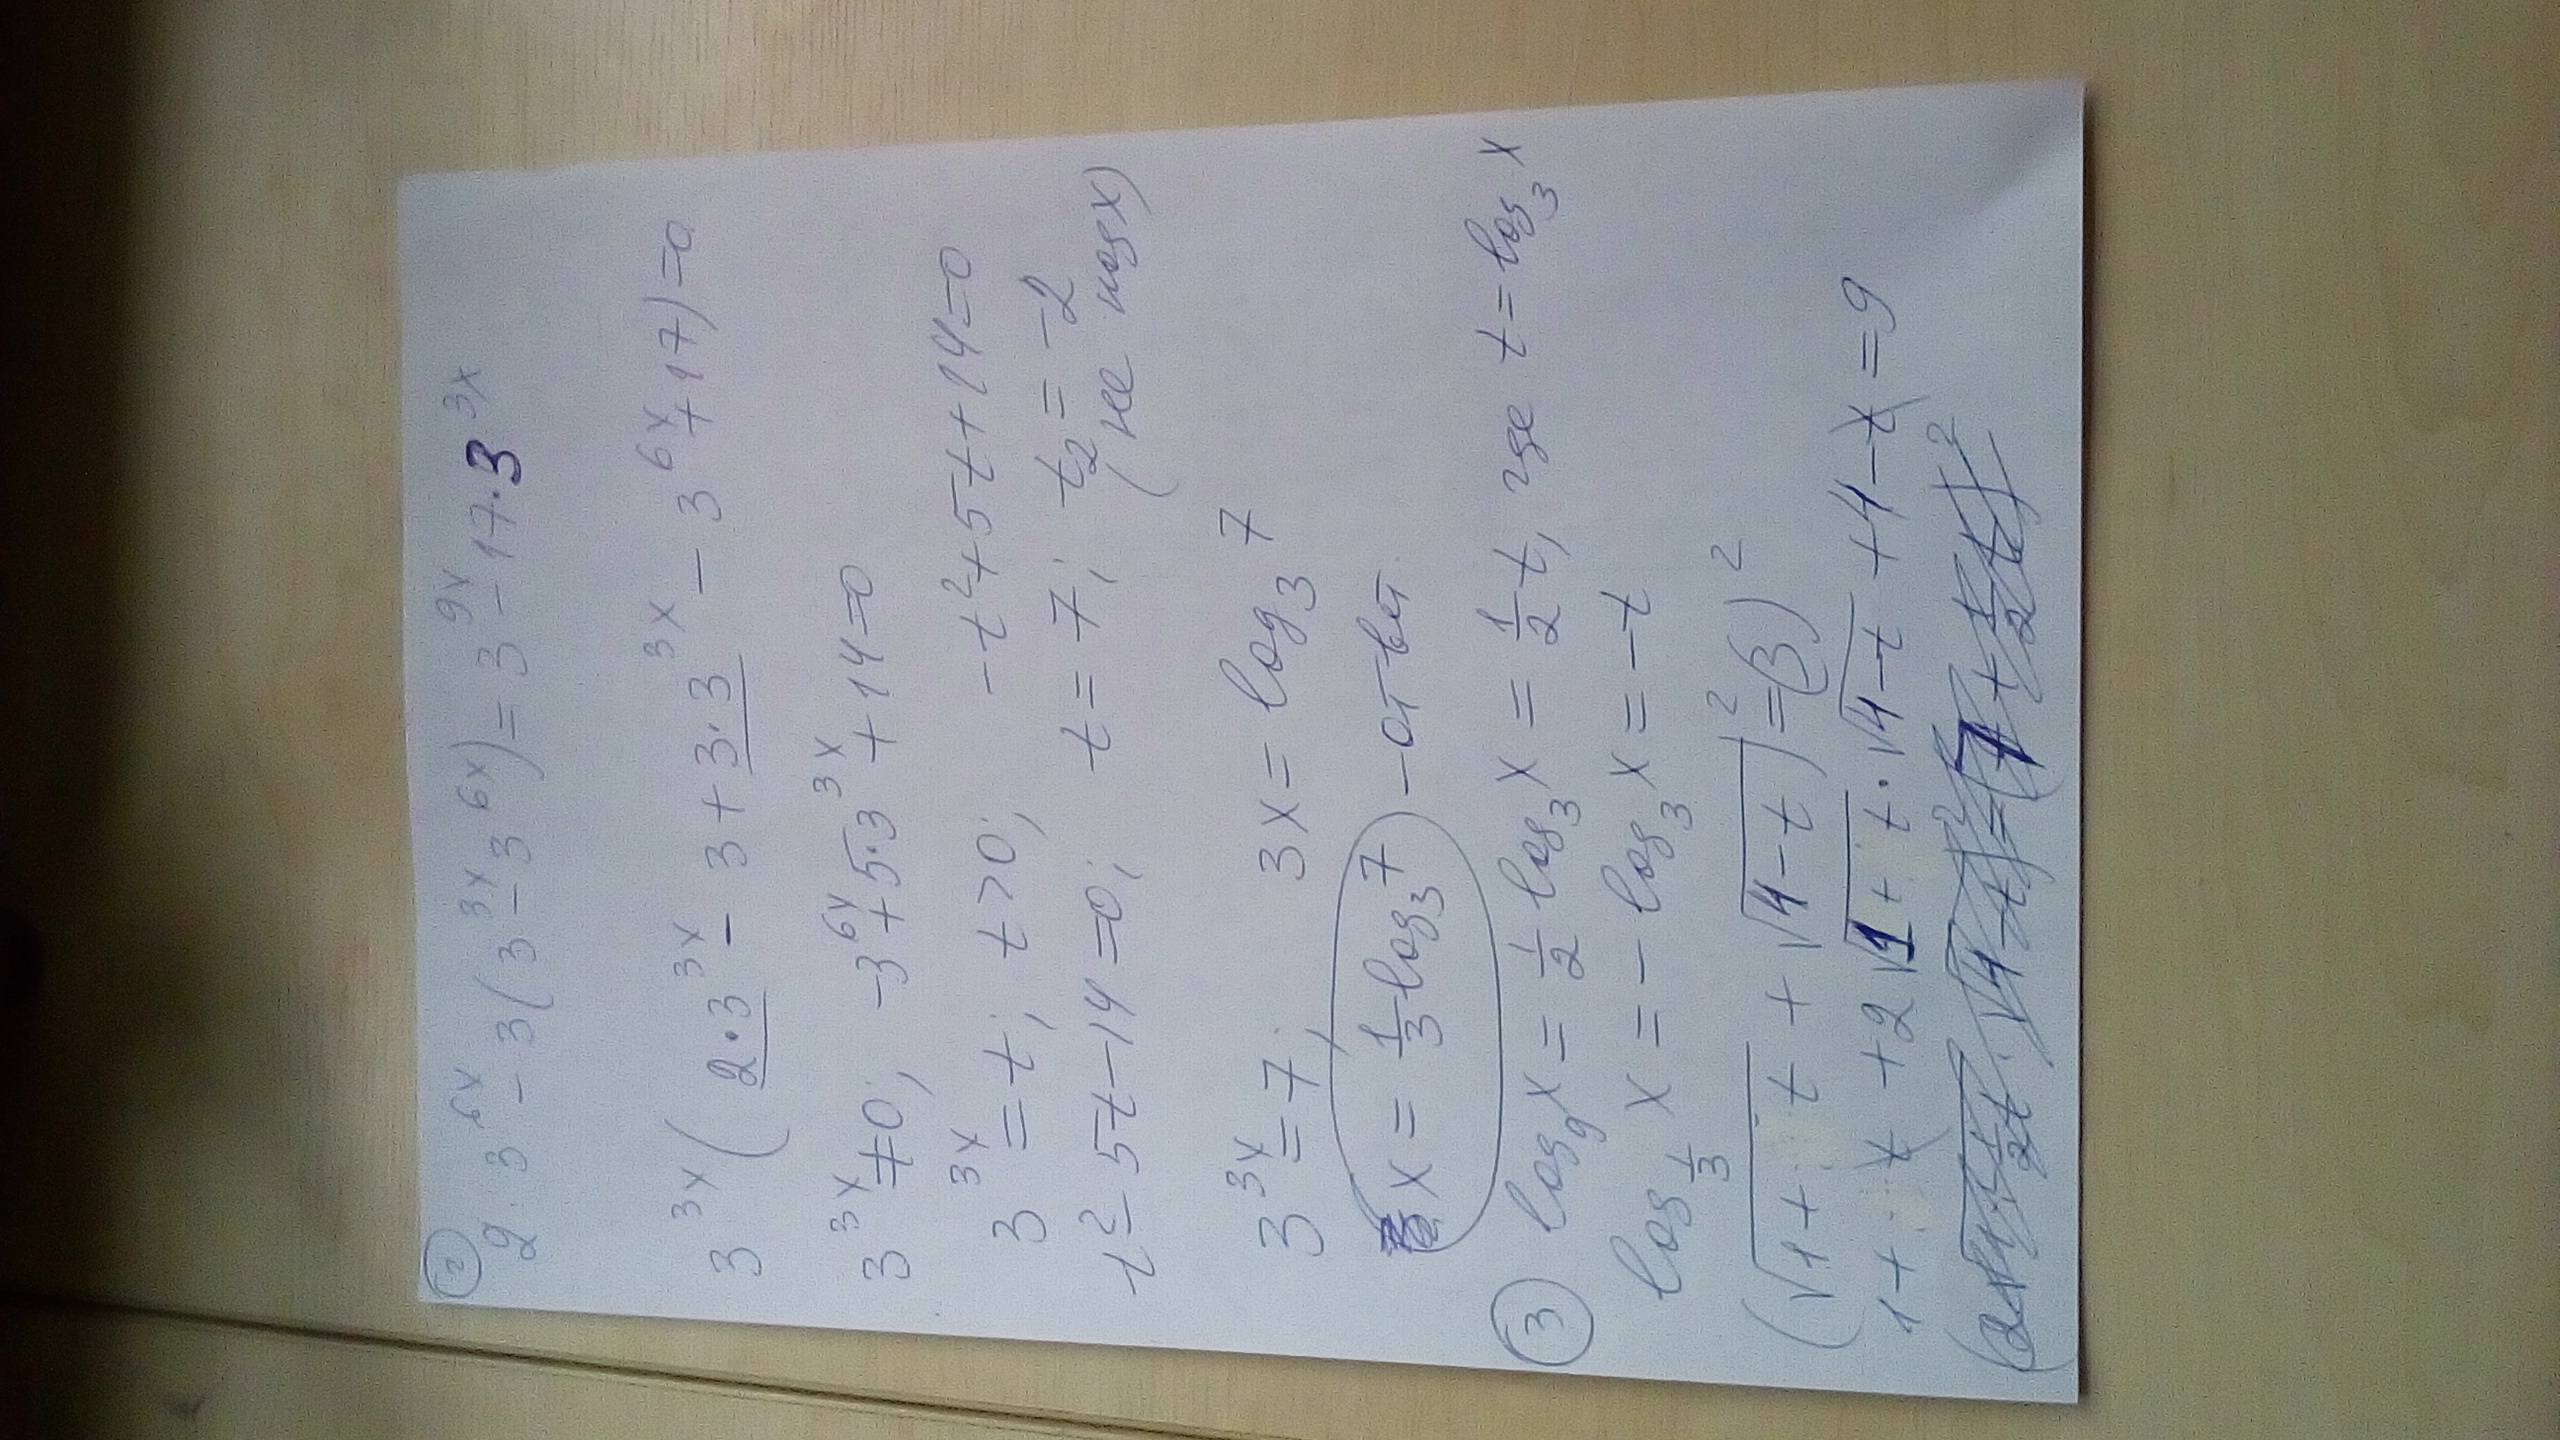 ②
2·3^6x - 3(3-3^3x-3^6x) = 3^9x - 17·3^3x
3^3x (2·3^3x - 3 + 3·3^3x - 3^6x + 17) = 0
3^3x ≠ 0; -3^6x + 5·3^3x + 14 = 0
3^3x = t; t > 0; -t² + 5t + 14 = 0
t² - 5t - 14 = 0; t = 7; t₂ = -2
(не подх)
3^3x = 7; 3x = log₃ 7
x = 1/3 log₃ 7 - ответ
③ log₉ x = 1/2 log₃ x = 1/2 t, где t = log₃ x
log_1/3 x = - log₃ x = -t
(√(1+t) + √(4-t))² = (3)²
1 + t + 2√(1+t) · √(4-t) + 4 - t = 9